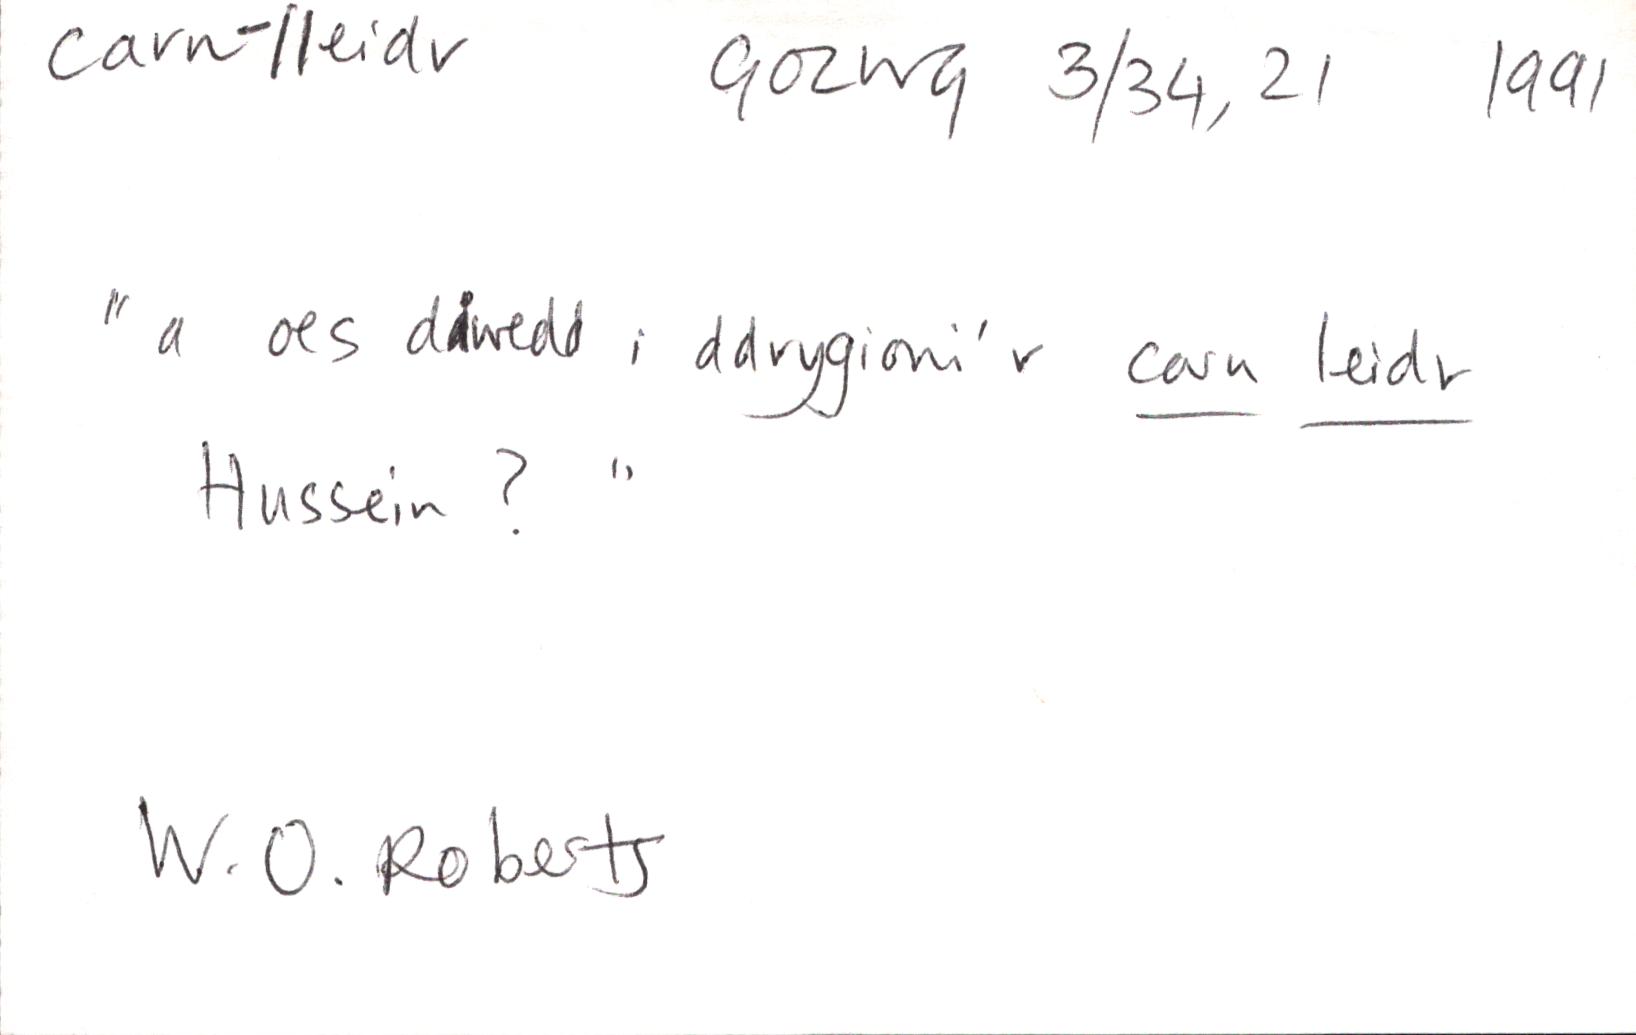 carn-lleidr GOLWG 3/34, 21 1991
"a oes diwedd i ddrygioni'r carn leidr
Hussein ? "
W. O. Roberts